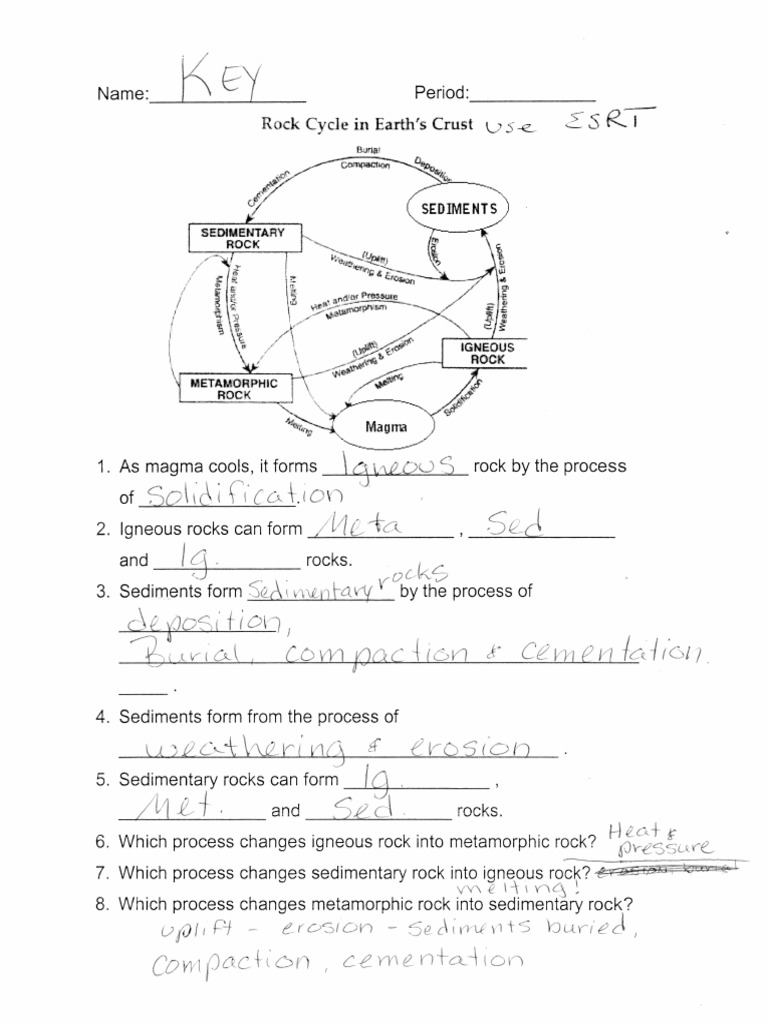 Name: KEY Period:
Rock Cycle in Earth's Crust use ESRT
Burial
Compaction
Deposition
Cementation
SEDIMENTS
SEDIMENTARY
ROCK
Erosion
(Uplift)
Weathering & Erosion
(Uplift)
Weathering & Erosion
Heat and/or Pressure
Metamorphism
Melting
Heat and/or Pressure
Metamorphism
IGNEOUS
ROCK
(Uplift)
Weathering & Erosion
METAMORPHIC
ROCK
Melting
Solidification
Melting
Magma
1. As magma cools, it forms Igneous rock by the process
of Solidification.
2. Igneous rocks can form Meta, Sed
and Ig. rocks.
3. Sediments form Sedimentary rocks by the process of
deposition,
Burial, compaction & cementation.
.
4. Sediments form from the process of
weathering & erosion.
5. Sedimentary rocks can form Ig.,
Met. and Sed. rocks.
6. Which process changes igneous rock into metamorphic rock? Heat & pressure
7. Which process changes sedimentary rock into igneous rock?
melting!
8. Which process changes metamorphic rock into sedimentary rock?
uplift - erosion - sediments buried,
compaction, cementation